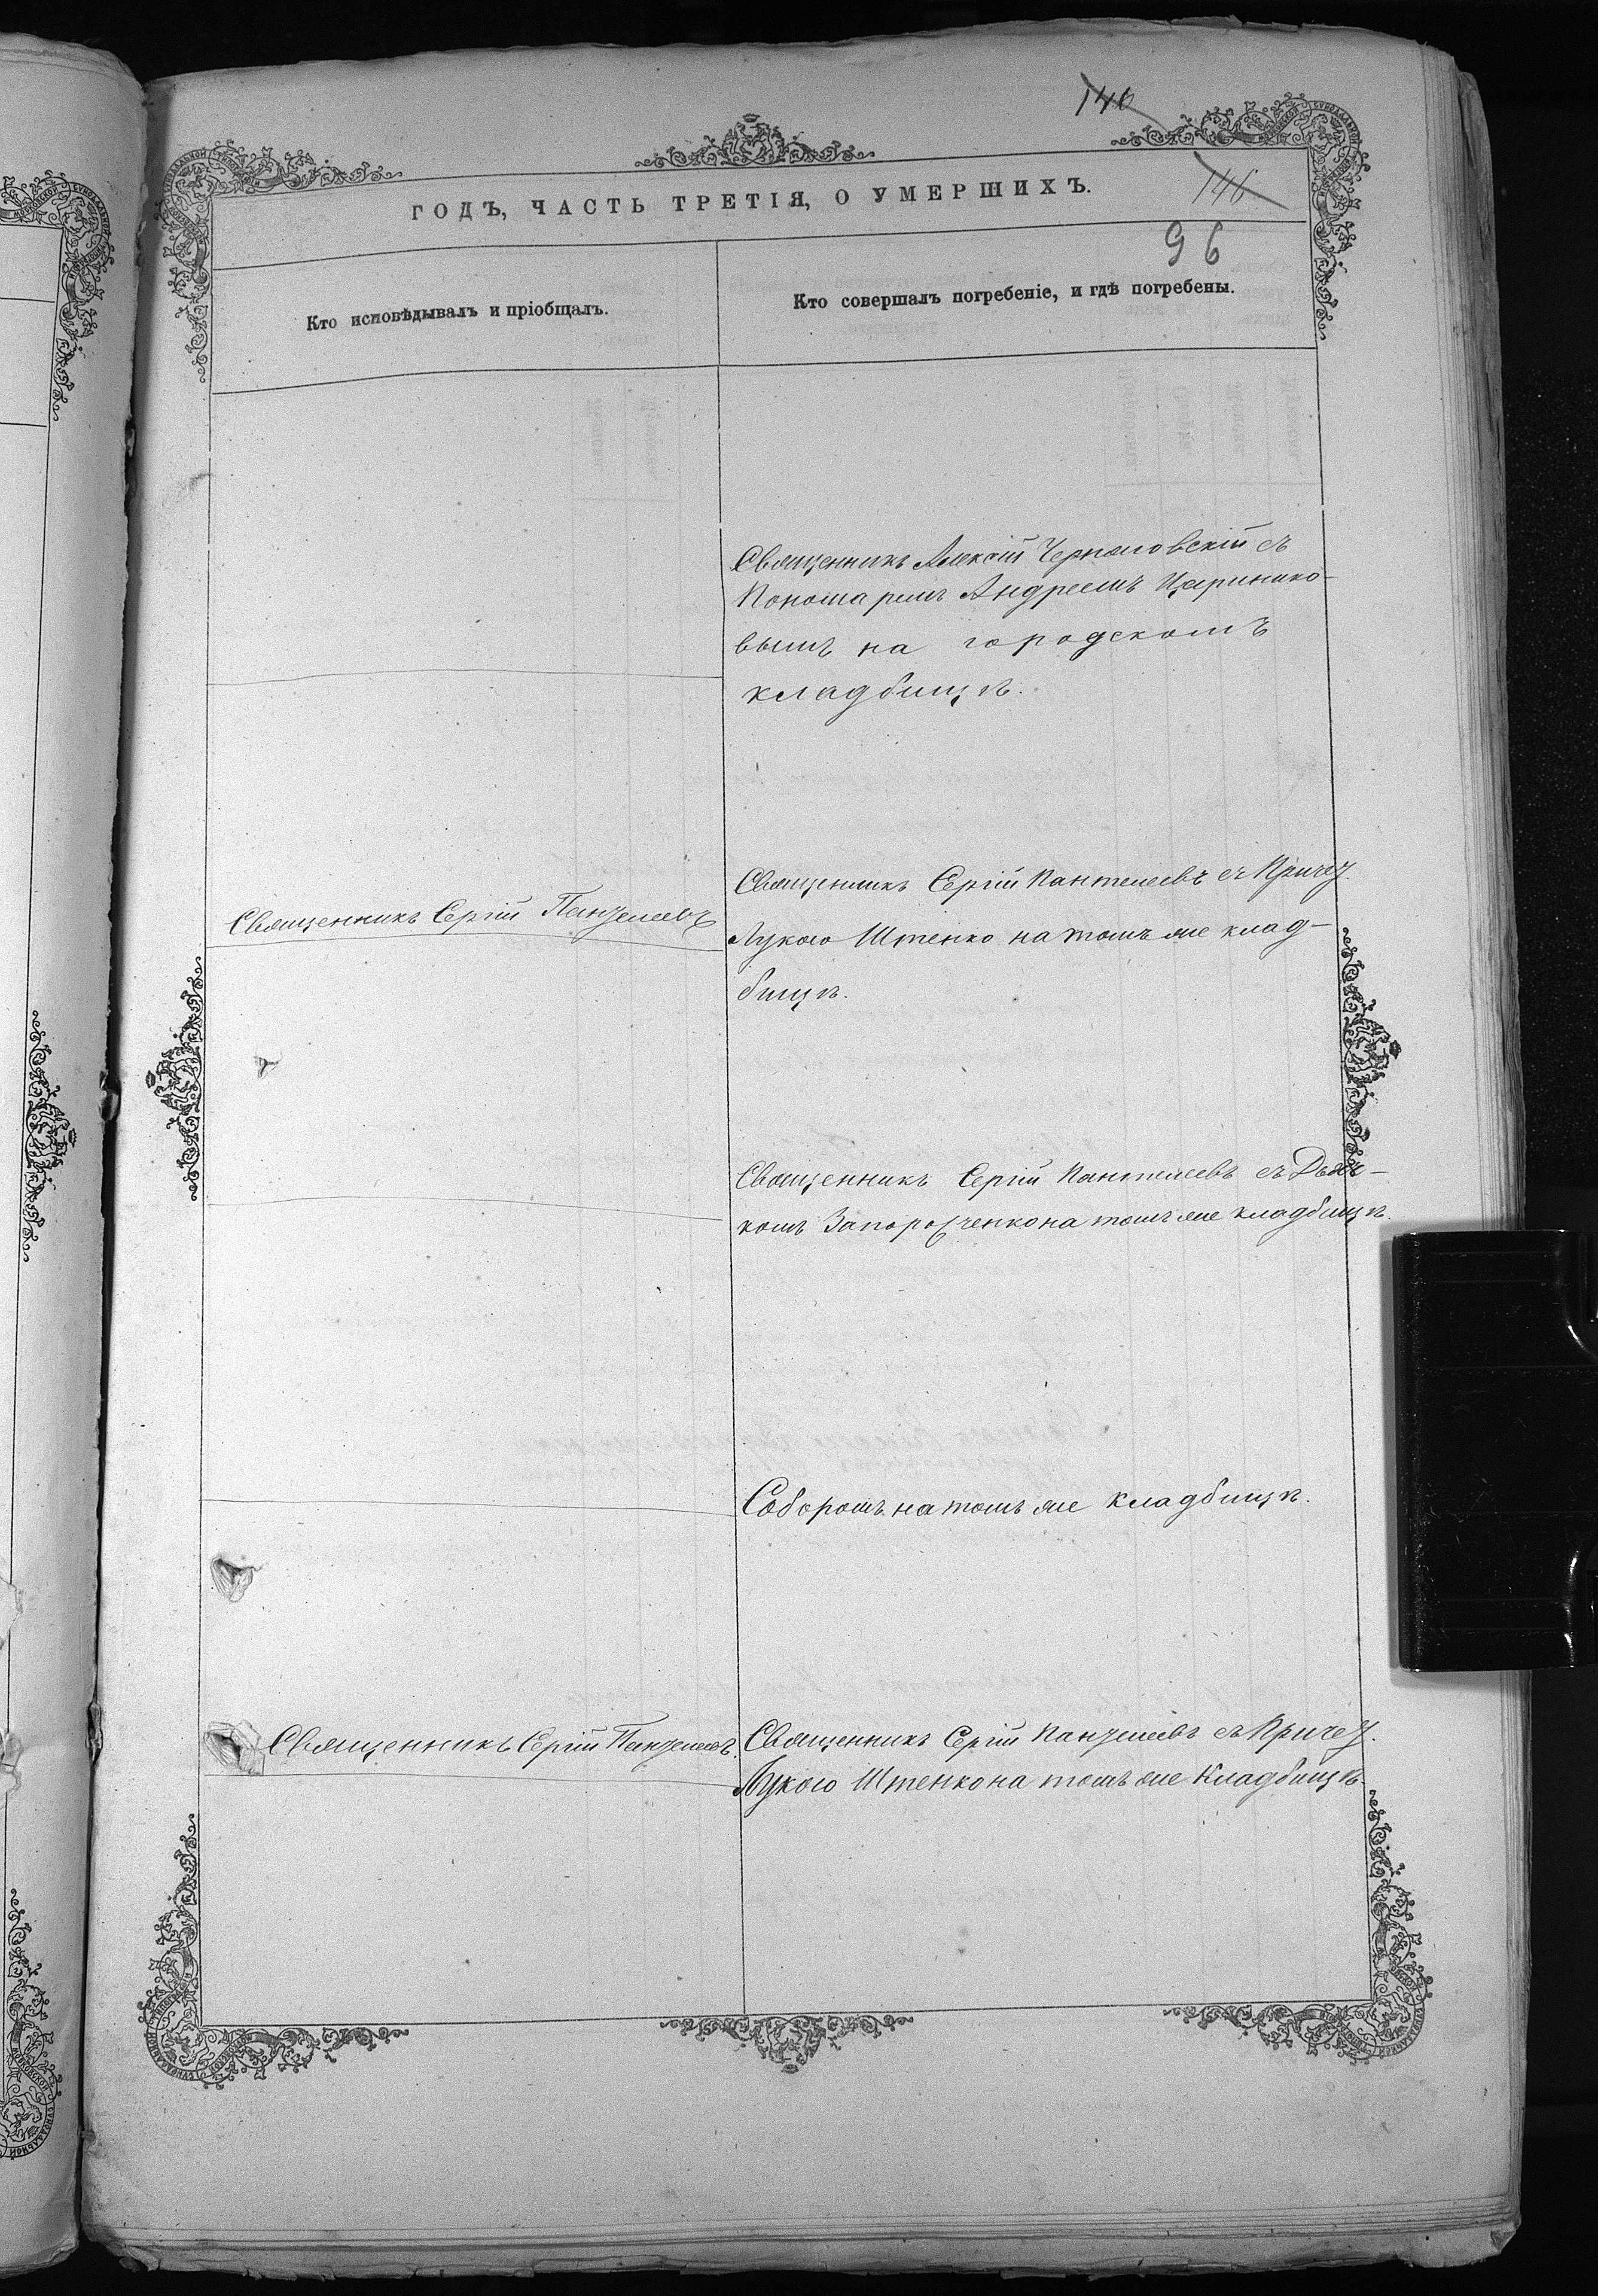 140
146
ГОДЪ, ЧАСТЬ ТРЕТІЯ, О УМЕРШИХЪ.
96
Кто исповѣдывалъ и пріобщалъ.
Кто совершалъ погребеніе, и гдѣ погребены.
Священникъ Алексій съ
Пономаремъ Андреемъ
вымъ на городскомъ
кладбищѣ.
Священникъ Сергій Пантелеевъ
Священникъ Сергій Пантелеевъ съ Причет.
Лукою Штенко на томъ же клад-
бищѣ.
Священникъ Сергій Пантелеевъ съ Дьяч-
комъ на томъ же кладбищѣ.
Соборомъ на томъ же кладбищѣ.
Священникъ Сергій Пантелеевъ.
Священникъ Сергій Пантелеевъ съ Причет.
Лукою Штенко на томъ же Кладбищѣ.